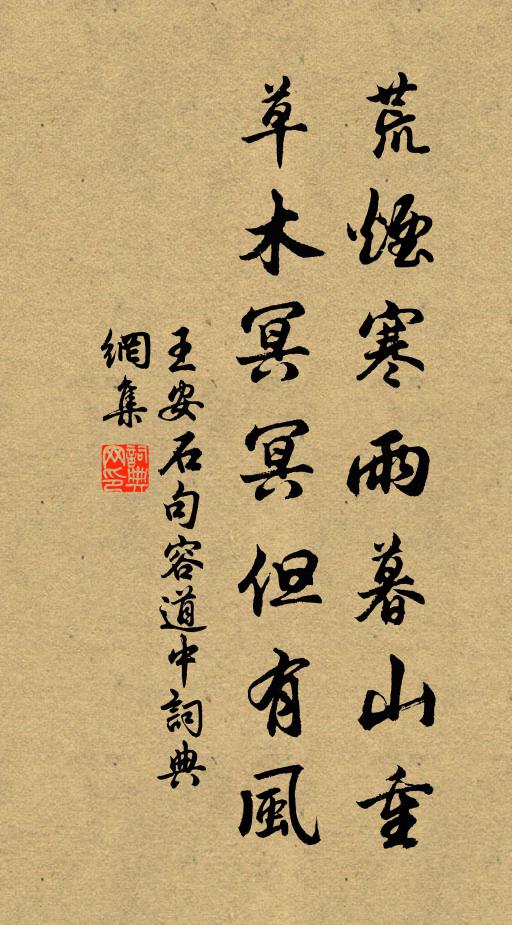 荒煙寒雨暮山重
草木冥冥但有風
王安石句容道中詞典
網集
詞典
网印